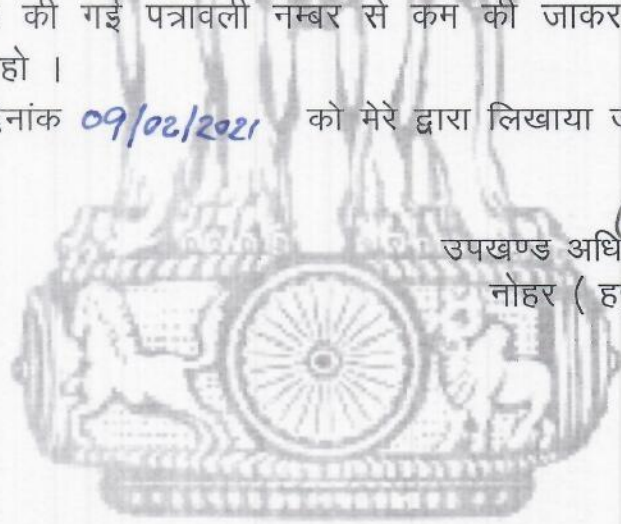 की गई पत्रावली नम्बर से कम की जाकर
हो ।
09/02/2021 को मेरे द्वारा लिखाया
उपखण्ड
नोहर (